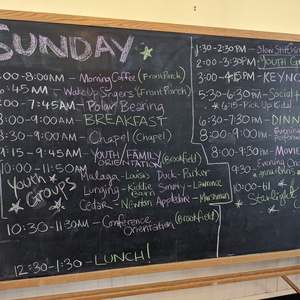 SUNDAY
:00-8:00AM - Morning Coffee (Front Porch)
:45AM - Wake Up Singers (Front Porch)
:00-7:45AM - Polar Bearing
:00-9:00AM - BREAKFAST
:30-9:00AM - Chapel (Chapel)
9:15-9:45AM - YOUTH/FAMILY ORIENTATION (Brookfield)
10:00-11:50AM
Youth Groups
Malaga - Louisa's Duck - Parker
Lunging - Kiddie Barn Smutty - Lawrence
Cedar - Newton Appledore - Marshman
10:30-11:30AM - Conference Orientation (Brookfield)
12:30-1:30 - LUNCH!
1:30-2:30PM - Slow
2:00-3:30PM - YOUTH
3:00-4:15PM - KEYNO
5:30-6:30PM - Social
* 6:15 - Pick Up Kids!
6:30-7:30PM - DINN
8:00-9:00PM - Evening
8:00-9:30PM - MOVIE
9:30 Evening Ch
10:00-
Starlight